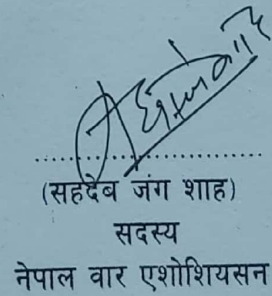 ....................
(सहदेब जंग शाह)
सदस्य
नेपाल वार एशोशियसन